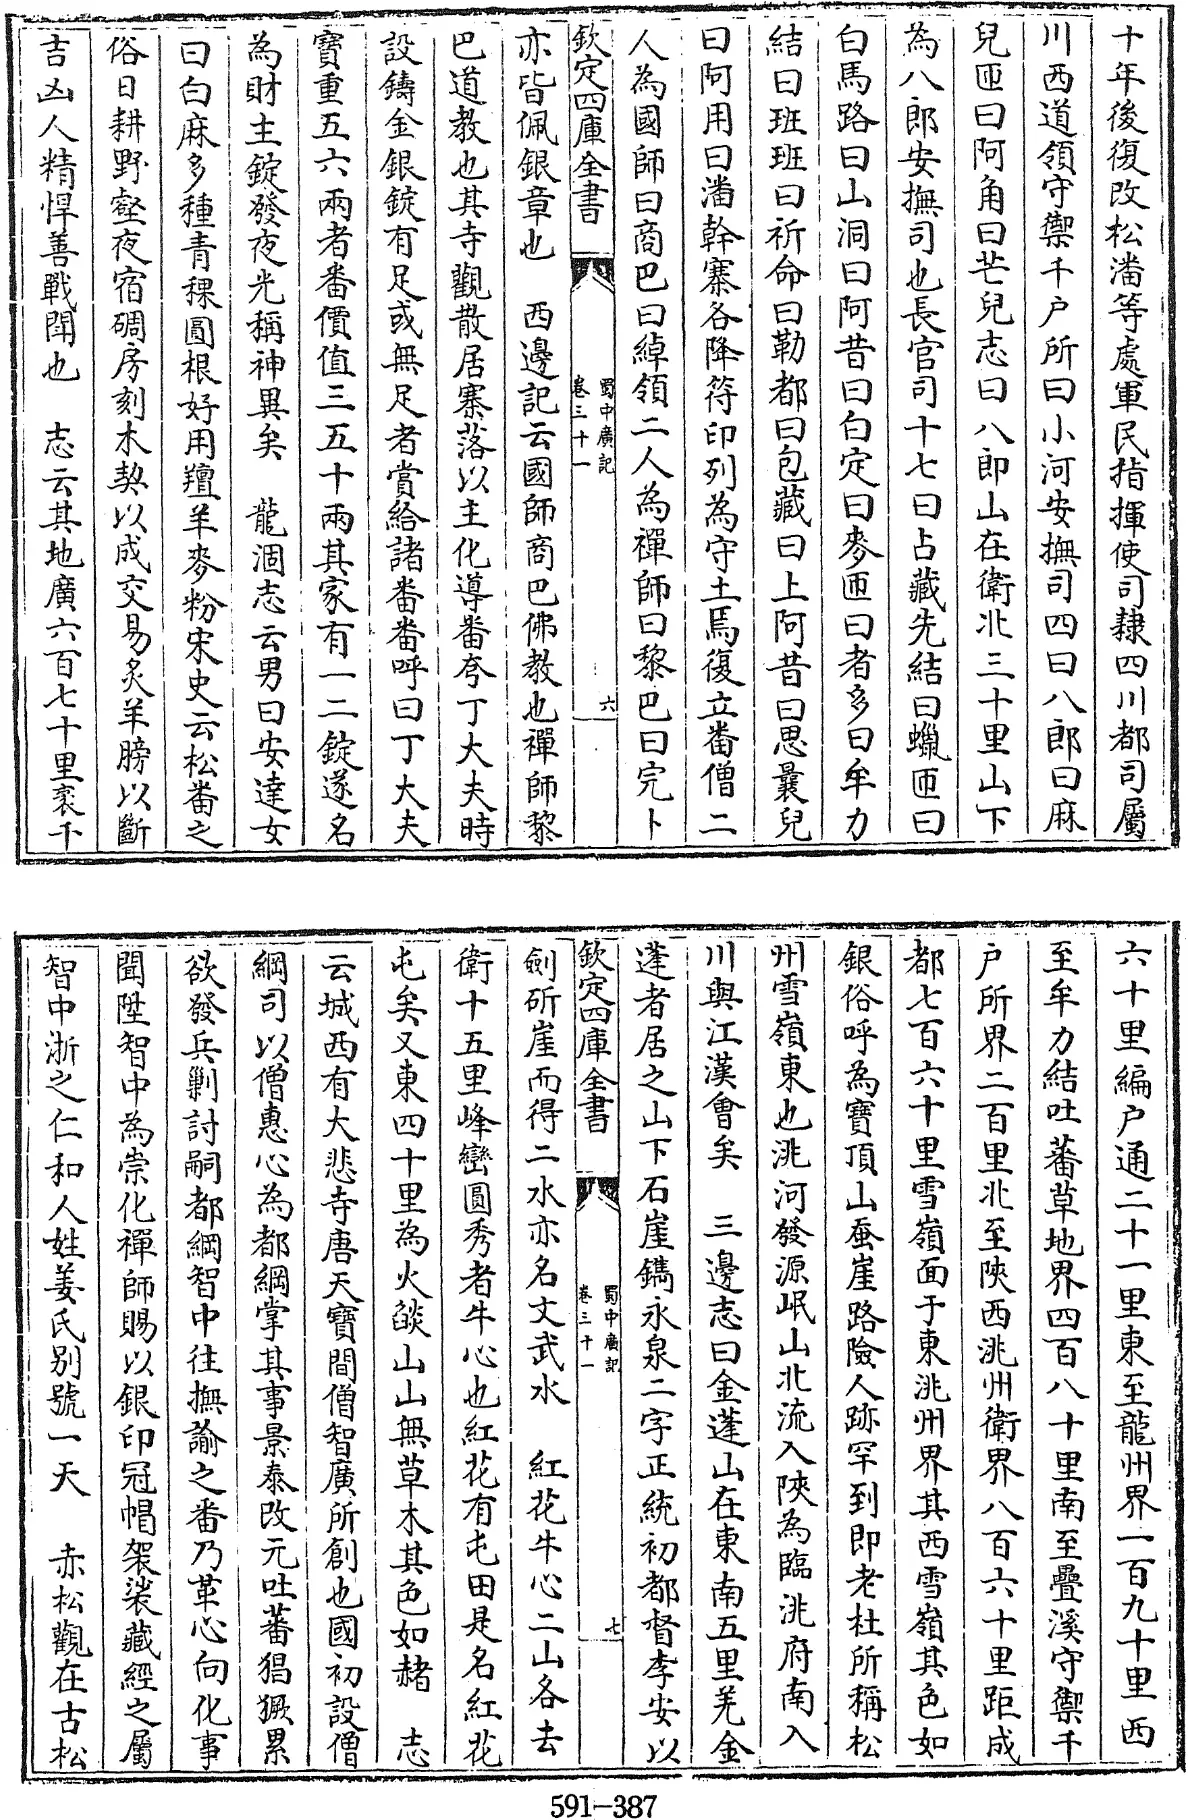 十年後復改松潘等處軍民指揮使司隸四川都司屬
川西道領守禦千户所曰小河安撫司四曰八郎曰麻
兒匝曰阿角曰芒兒志曰八郎山在衛北三十里山下
為八郎安撫司也長官司十七曰占藏先結曰蠟匝曰
白馬路曰山洞曰阿昔曰白定曰麥匝曰者多曰牟力
結曰班班曰祈命曰勒都曰包藏曰上阿昔曰思曩兒
曰阿用曰潘幹寨各降符印列為守土焉復立番僧二
人為國師曰商巴曰綽領二人為禪師曰黎巴曰完卜
欽定四庫全書
蜀中廣記
卷三十一
六
亦皆佩銀章也　西邊記云國師商巴佛教也禪師黎
巴道教也其寺觀散居寨落以主化導番夸丁大夫時
設鑄金銀錠有足或無足者賞給諸番番呼曰丁大夫
寶重五六兩者番價值三五十兩其家有一二錠遂名
為財主錠發夜光稱神異矣　龍涸志云男曰安達女
曰白麻多種青稞圓根好用羶羊麥粉宋史云松番之
俗日耕野壑夜宿碉房刻木契以成交易炙羊膀以斷
吉凶人精悍善戰鬪也　志云其地廣六百七十里袤千
六十里編户通二十一里東至龍州界一百九十里西
至牟力結吐蕃草地界四百八十里南至疊溪守禦千
户所界二百里北至陜西洮州衛界八百六十里距成
都七百六十里雪嶺面于東洮州界其西雪嶺其色如
銀俗呼為寶頂山蚕崖路險人跡罕到即老杜所稱松
州雪嶺東也洮河發源岷山北流入陜為臨洮府南入
川與江漢會矣　三邊志曰金蓬山在東南五里羌金
蓬者居之山下石崖鐫永泉二字正統初都督李安以
欽定四庫全書
蜀中廣記
卷三十一
七
劍斫崖而得二水亦名文武水　紅花牛心二山各去
衛十五里峰巒圓秀者牛心也紅花有屯田是名紅花
屯矣又東四十里為火燄山山無草木其色如赭　志
云城西有大悲寺唐天寶間僧智廣所創也國初設僧
綱司以僧惠心為都綱掌其事景泰改元吐蕃猖獗累
欲發兵剿討嗣都綱智中往撫諭之番乃革心向化事
聞陞智中為崇化禪師賜以銀印冠帽袈裟藏經之屬
智中浙之仁和人姓姜氏别號一天　赤松觀在古松
591-387